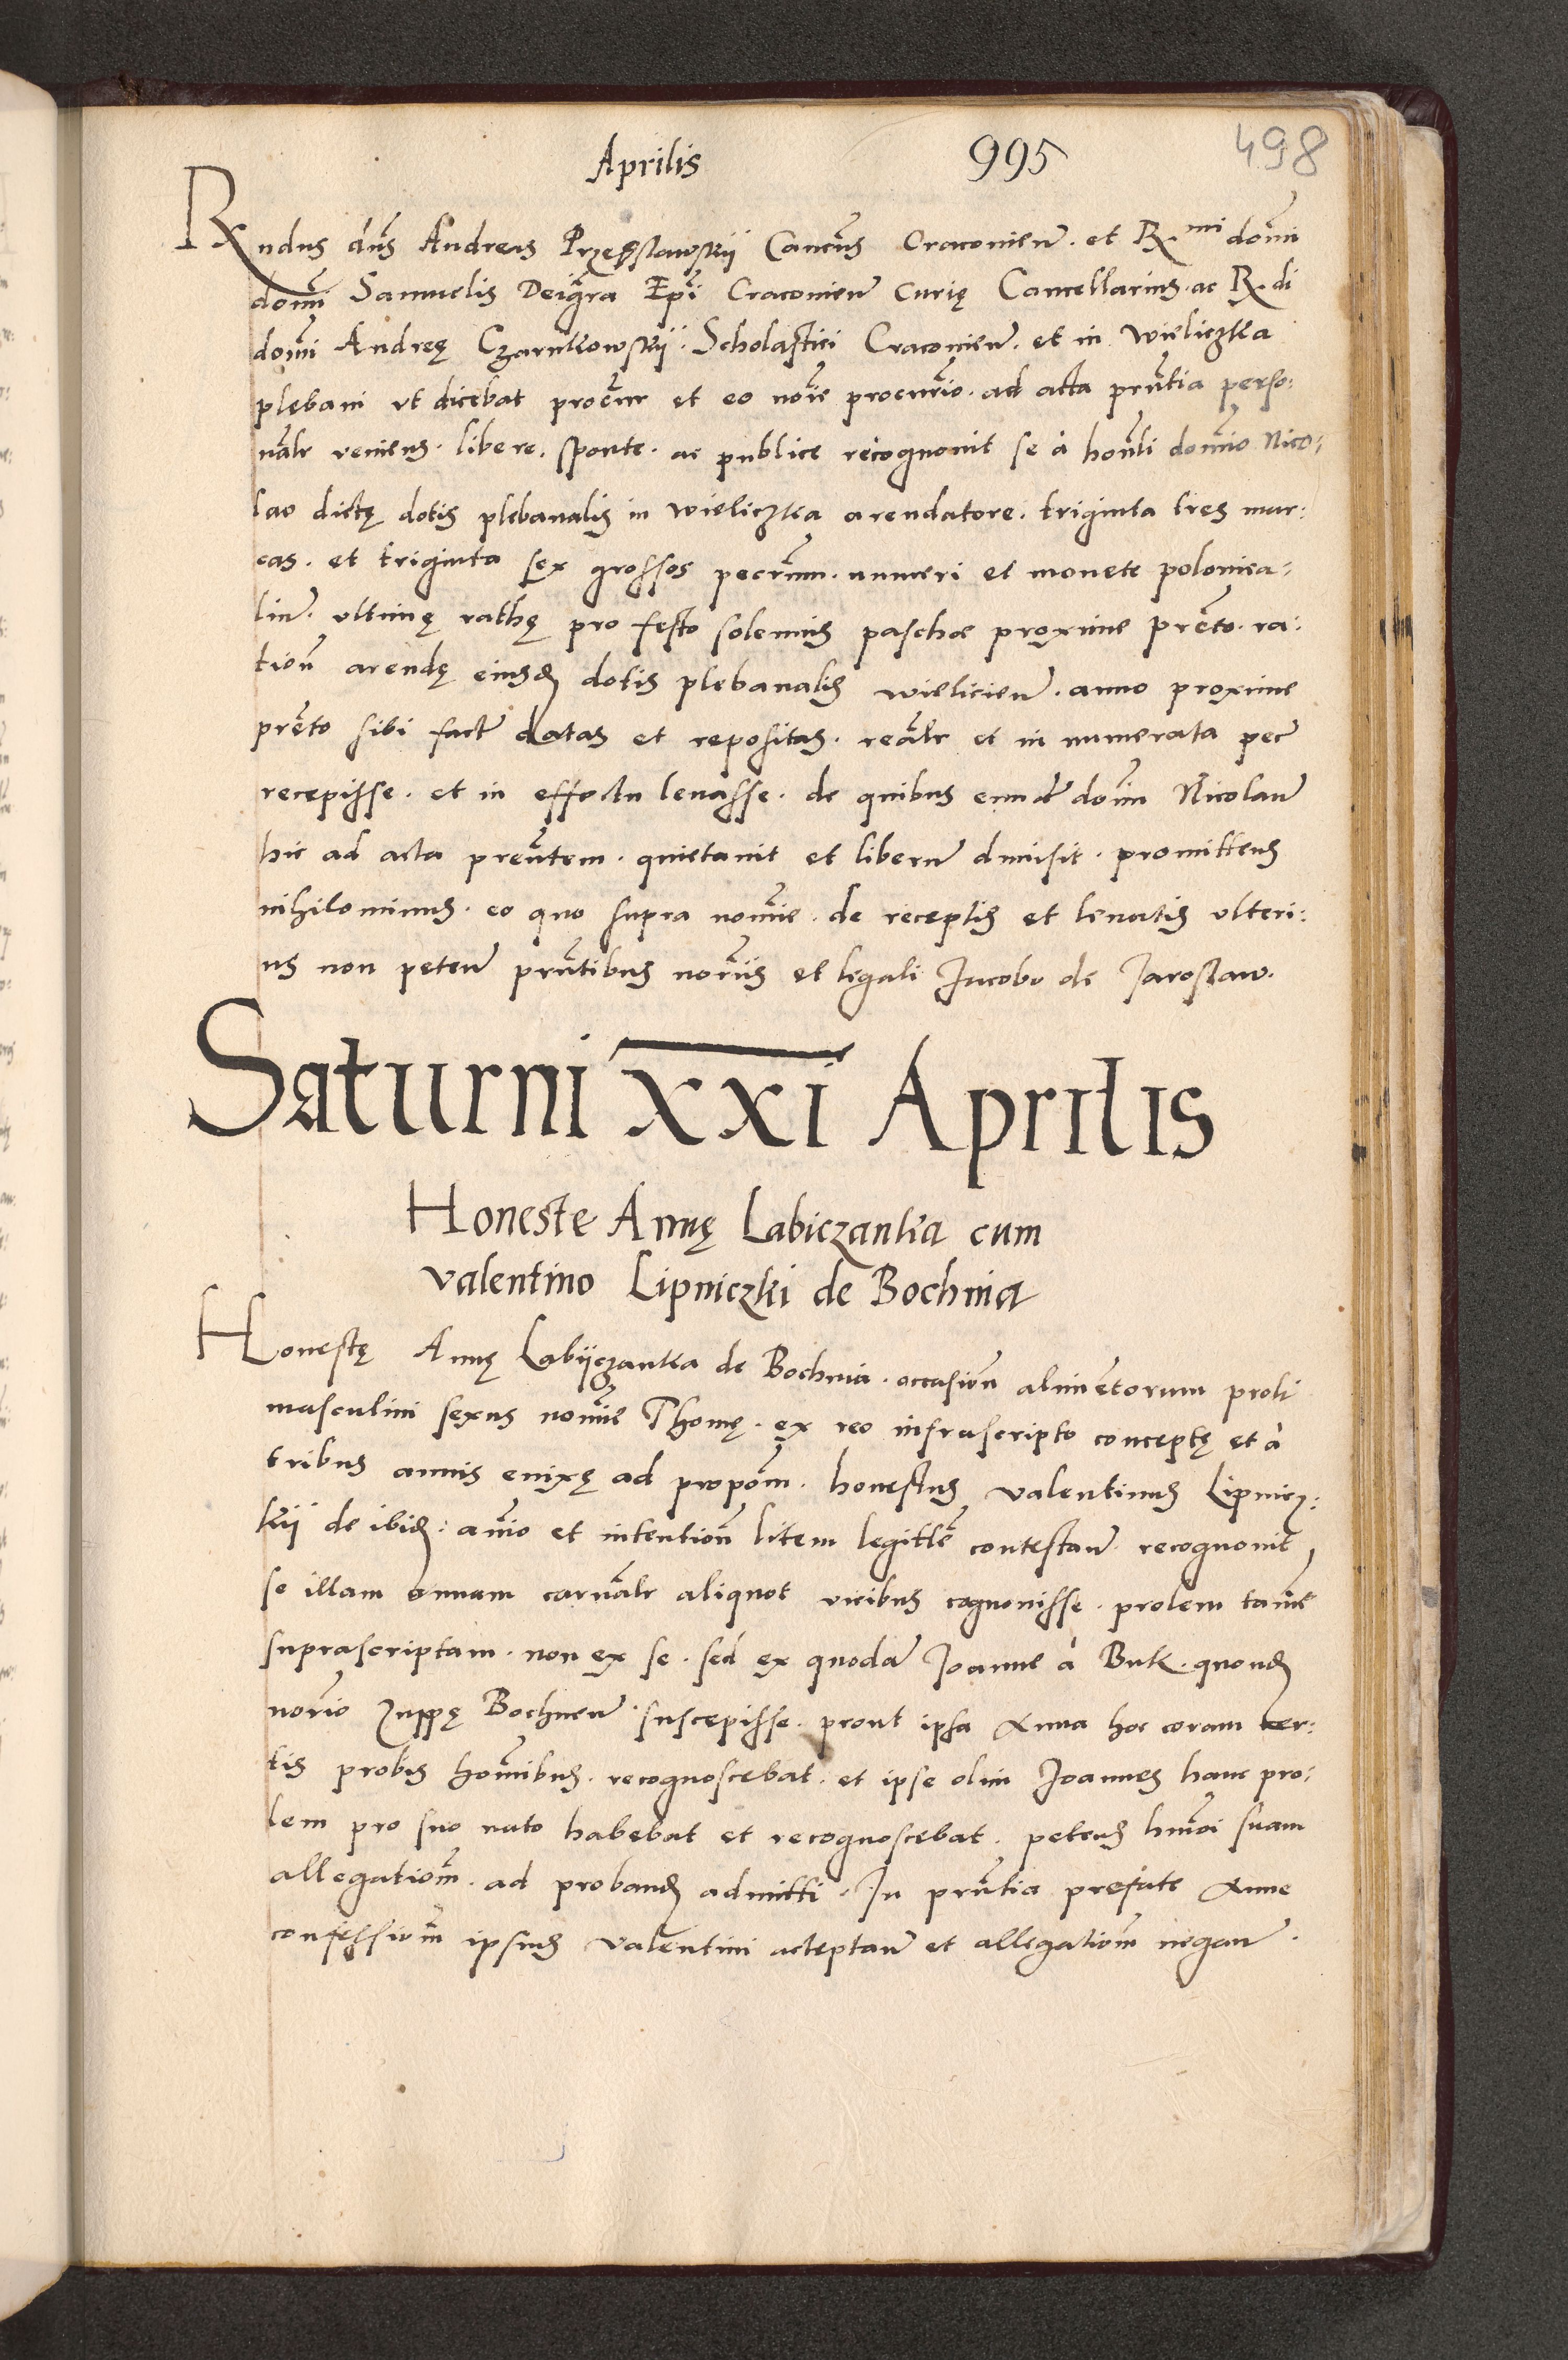 Aprilis 995 498
Rndus dns Andreas Przeczslawskij Cancus Cracovien. et R.mi domi
domi Samuelis Dei gra Epi Cracovien curię Cancellarius. ac R.di
domi Andreę Czarnkowskij. Scholastici Cracovien. et in Wieliczka
plebani ut dicebat procur et eo noie procurio. ad acta prntia perso:
nalr veniens. libere. sponte. ac publice recognovit se à honli domino Nico:
lao dictę dotis plebanalis in Wieliczka arendatore. triginta tres mar:
cas. et triginta sex grossos pecrum. numeri et monete polonica:
liu. ultimę rathę pro festo solennis paschae proxime prento. ra:
tion arendę eiusd dotis plebanalis wielicien. anno proxime
prento sibi fact datas et repositas. realr et in numerata pec
recepisse. et in effectu levasse. de quibus eund dom Nicolau
hic ad acta prentem. quietavit et liberu dmisit. promittens
nihilominus. eo quo supra nomie. de receptis et levatis ulteri:
us non peten prntibus noriis et legali Jacobo de Jaroslaw.
Saturni xxi Aprilis
Honeste Annę Labiczanka cum
valentino Lipniczki de Bochnia
Honestę Annę Labijczanka de Bochnia. occasion alimentorum proli
masculini sexus nomie Thomę. ex reo infrascripto conceptę et à
tribus annis enixę ad propom. honestus valentinus Lipnicz:
kij de ibid: animo et intention litem legitte contestan recognovit
se illam annam carnalr aliquot vicibus cognovisse. prolem tame
suprascriptam. non ex se. sed ex quoda Joanne à Buk. quond
norio Zuppę Bochnen. suscepisse. prout ipsa Anna hoc coram cer:
tis probis homibus. recognoscebat. et ipse olim Joannes hanc pro:
lem pro suo nato habebat et recognoscebat. petens hmoi suam
allegationem. ad proband admitti. In prntia prefate Anne
confessionem ipsius valentini acceptan et allegationem negan.